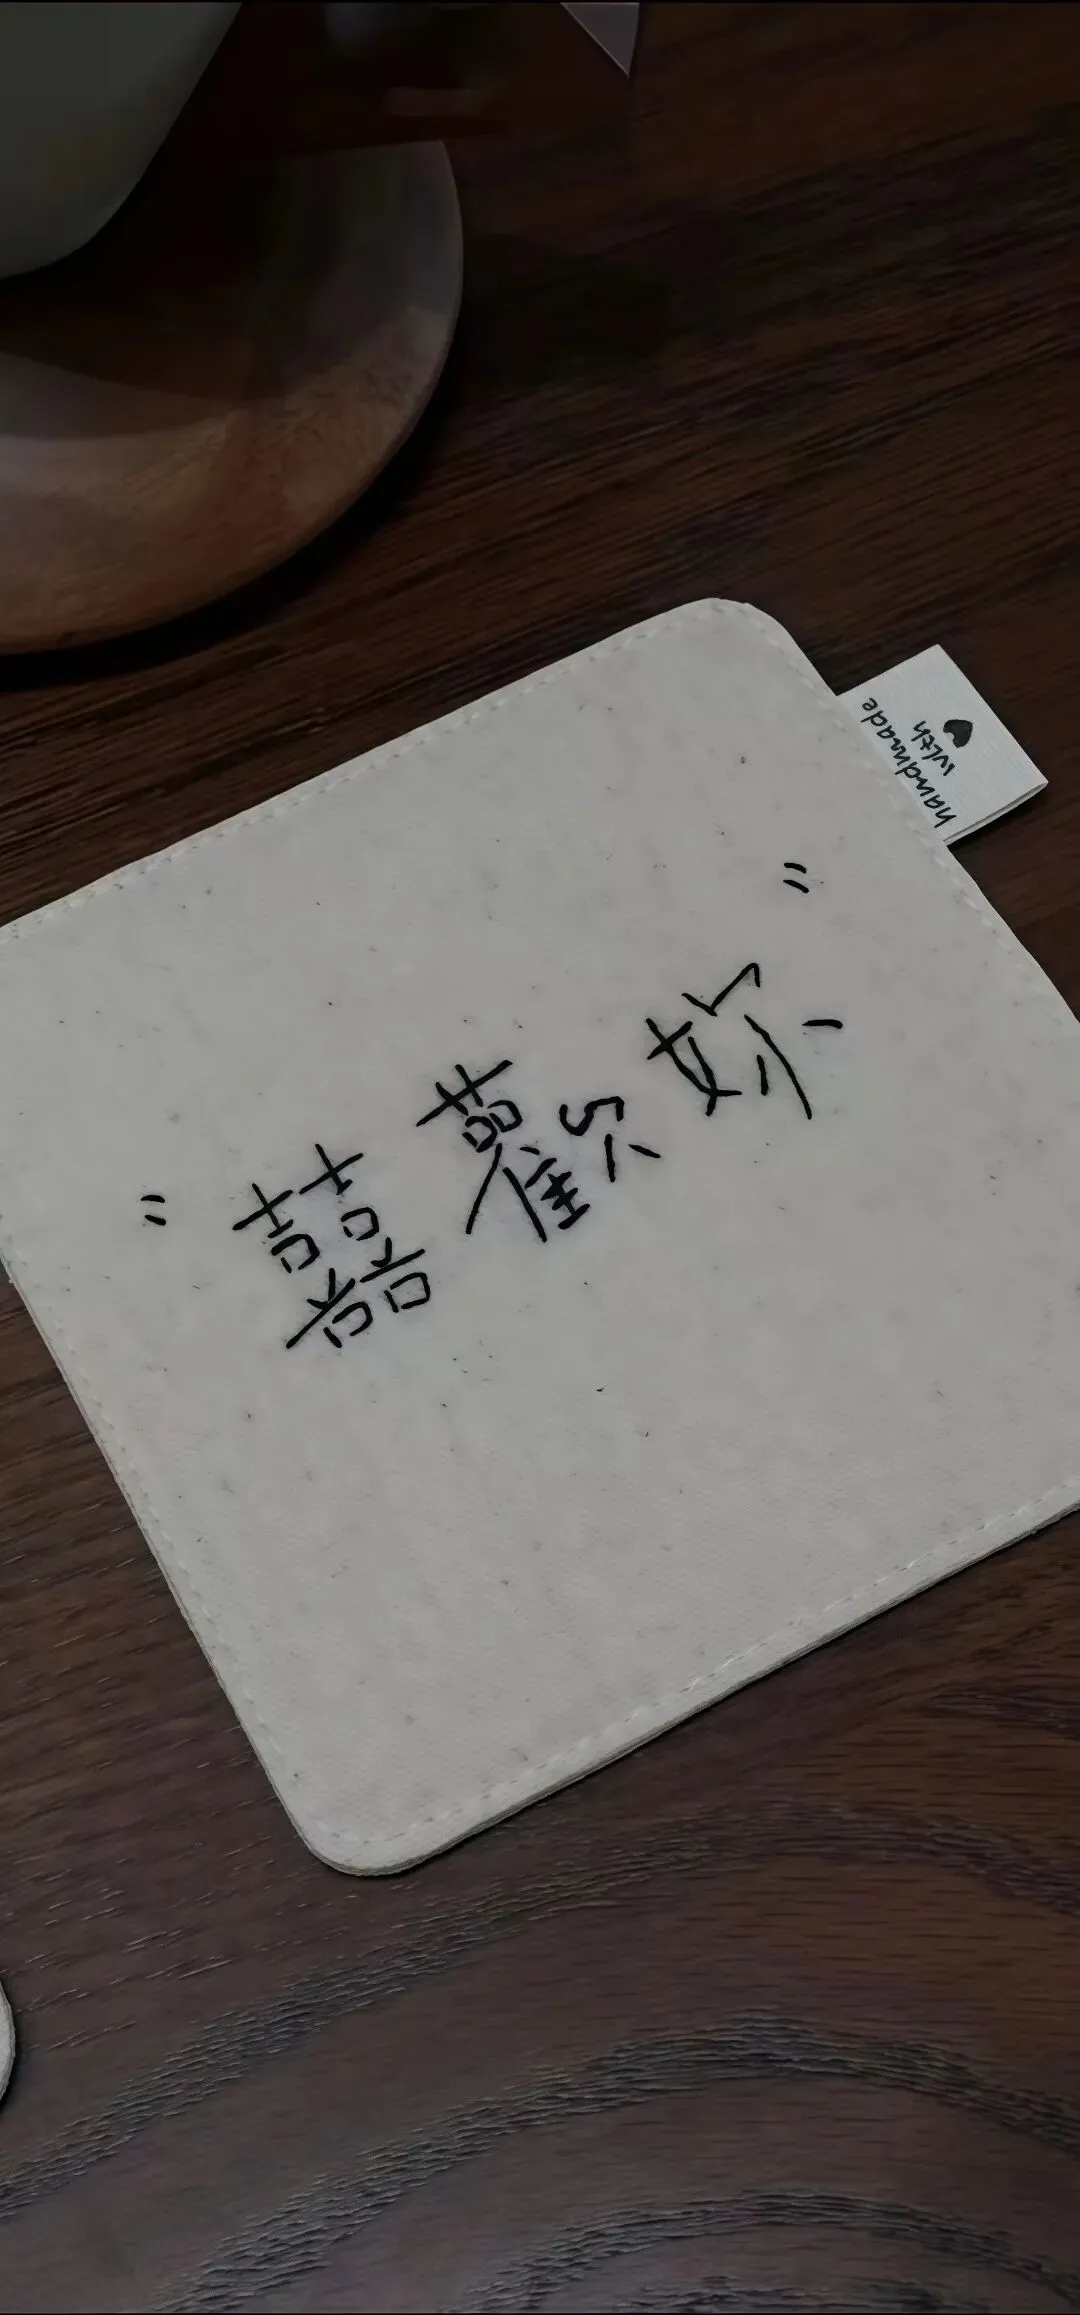 handmade
with ♥
"囍歡妳"